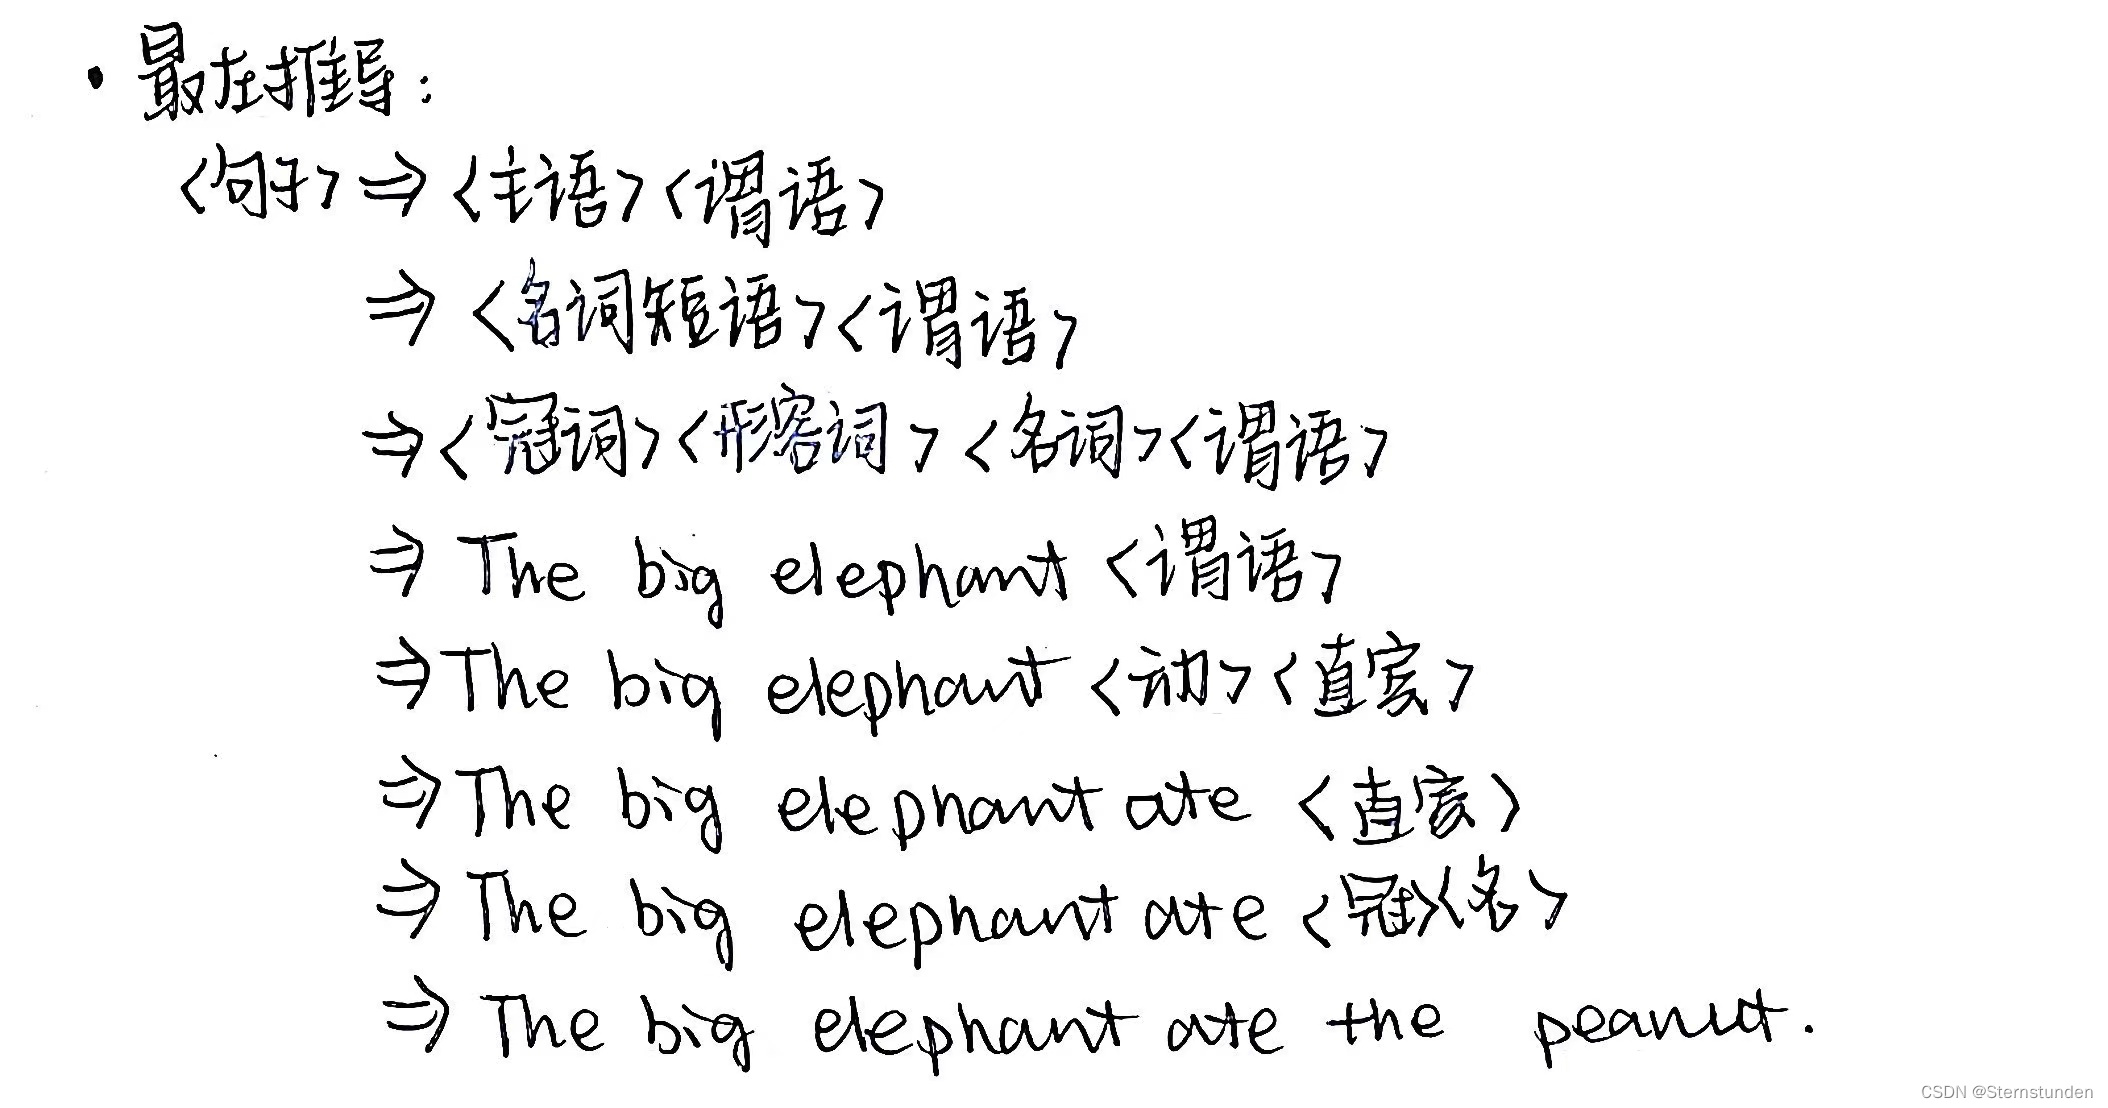 • 最左推导:
<句子> ⇒ <主语><谓语>
⇒ <名词短语><谓语>
⇒ <冠词><形容词><名词><谓语>
⇒ The big elephant <谓语>
⇒ The big elephant <动><直宾>
⇒ The big elephant ate <直宾>
⇒ The big elephant ate <冠><名>
⇒ The big elephant ate the peanut.
CSDN @Sternstunden